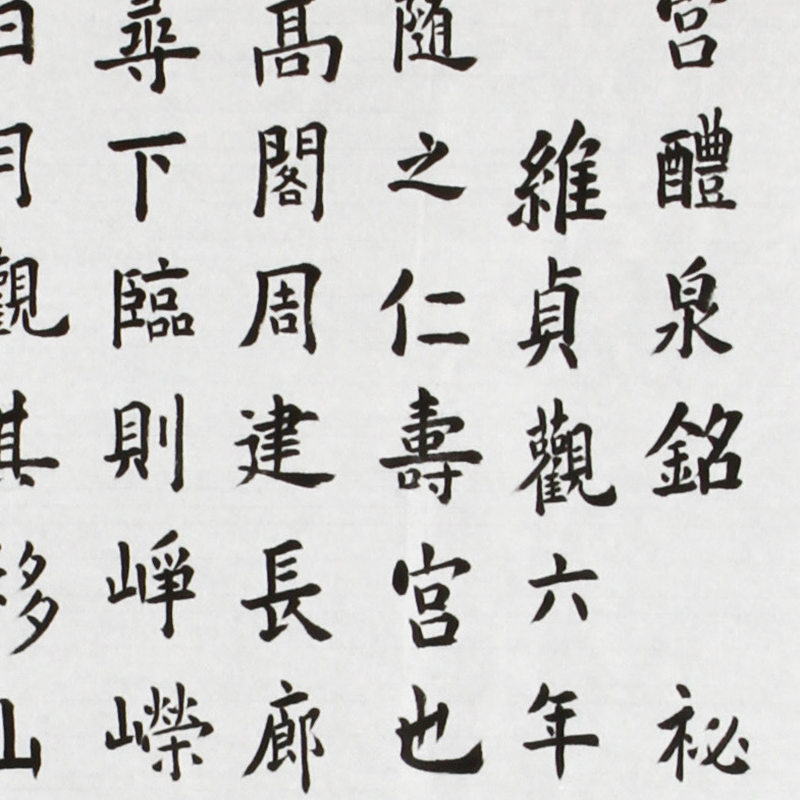 宮醴泉銘祕
維貞觀六年
隨之仁壽宮也
高閣周建長廊
尋下臨則崢嶸
日月觀其移山